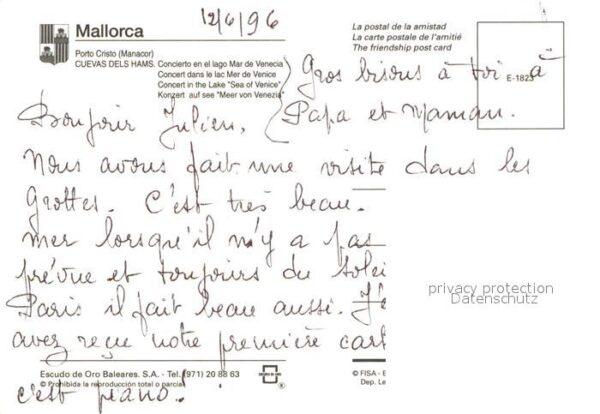 12/6/96
Mallorca
Porto Cristo (Manacor)
CUEVAS DELS HAMS. Concierto en el lago Mar de Venecia
Concert dans le lac Mer de Venice
Concert in the Lake "Sea of Venice"
Konzert auf see "Meer von Venezia"
La postal de la amistad
La carte postale de l'amitié
The friendship post card
E-1823
Gros bisous à toi à
Papa et Maman.
Bonjour Julien,
Nous avons fait une visite dans les
grottes. C'est très beau.
mer lorsqu'il n'y a pas
prévue et toujours du solei
Paris il fait beau aussi. J'e
avez reçu notre première cart
c'est piano!
privacy protection
Datenschutz
Escudo de Oro Baleares. S.A. - Tel. (971) 20 88 63
© Prohibida la reproducción total o parcial
© FISA - E
Dep. Le